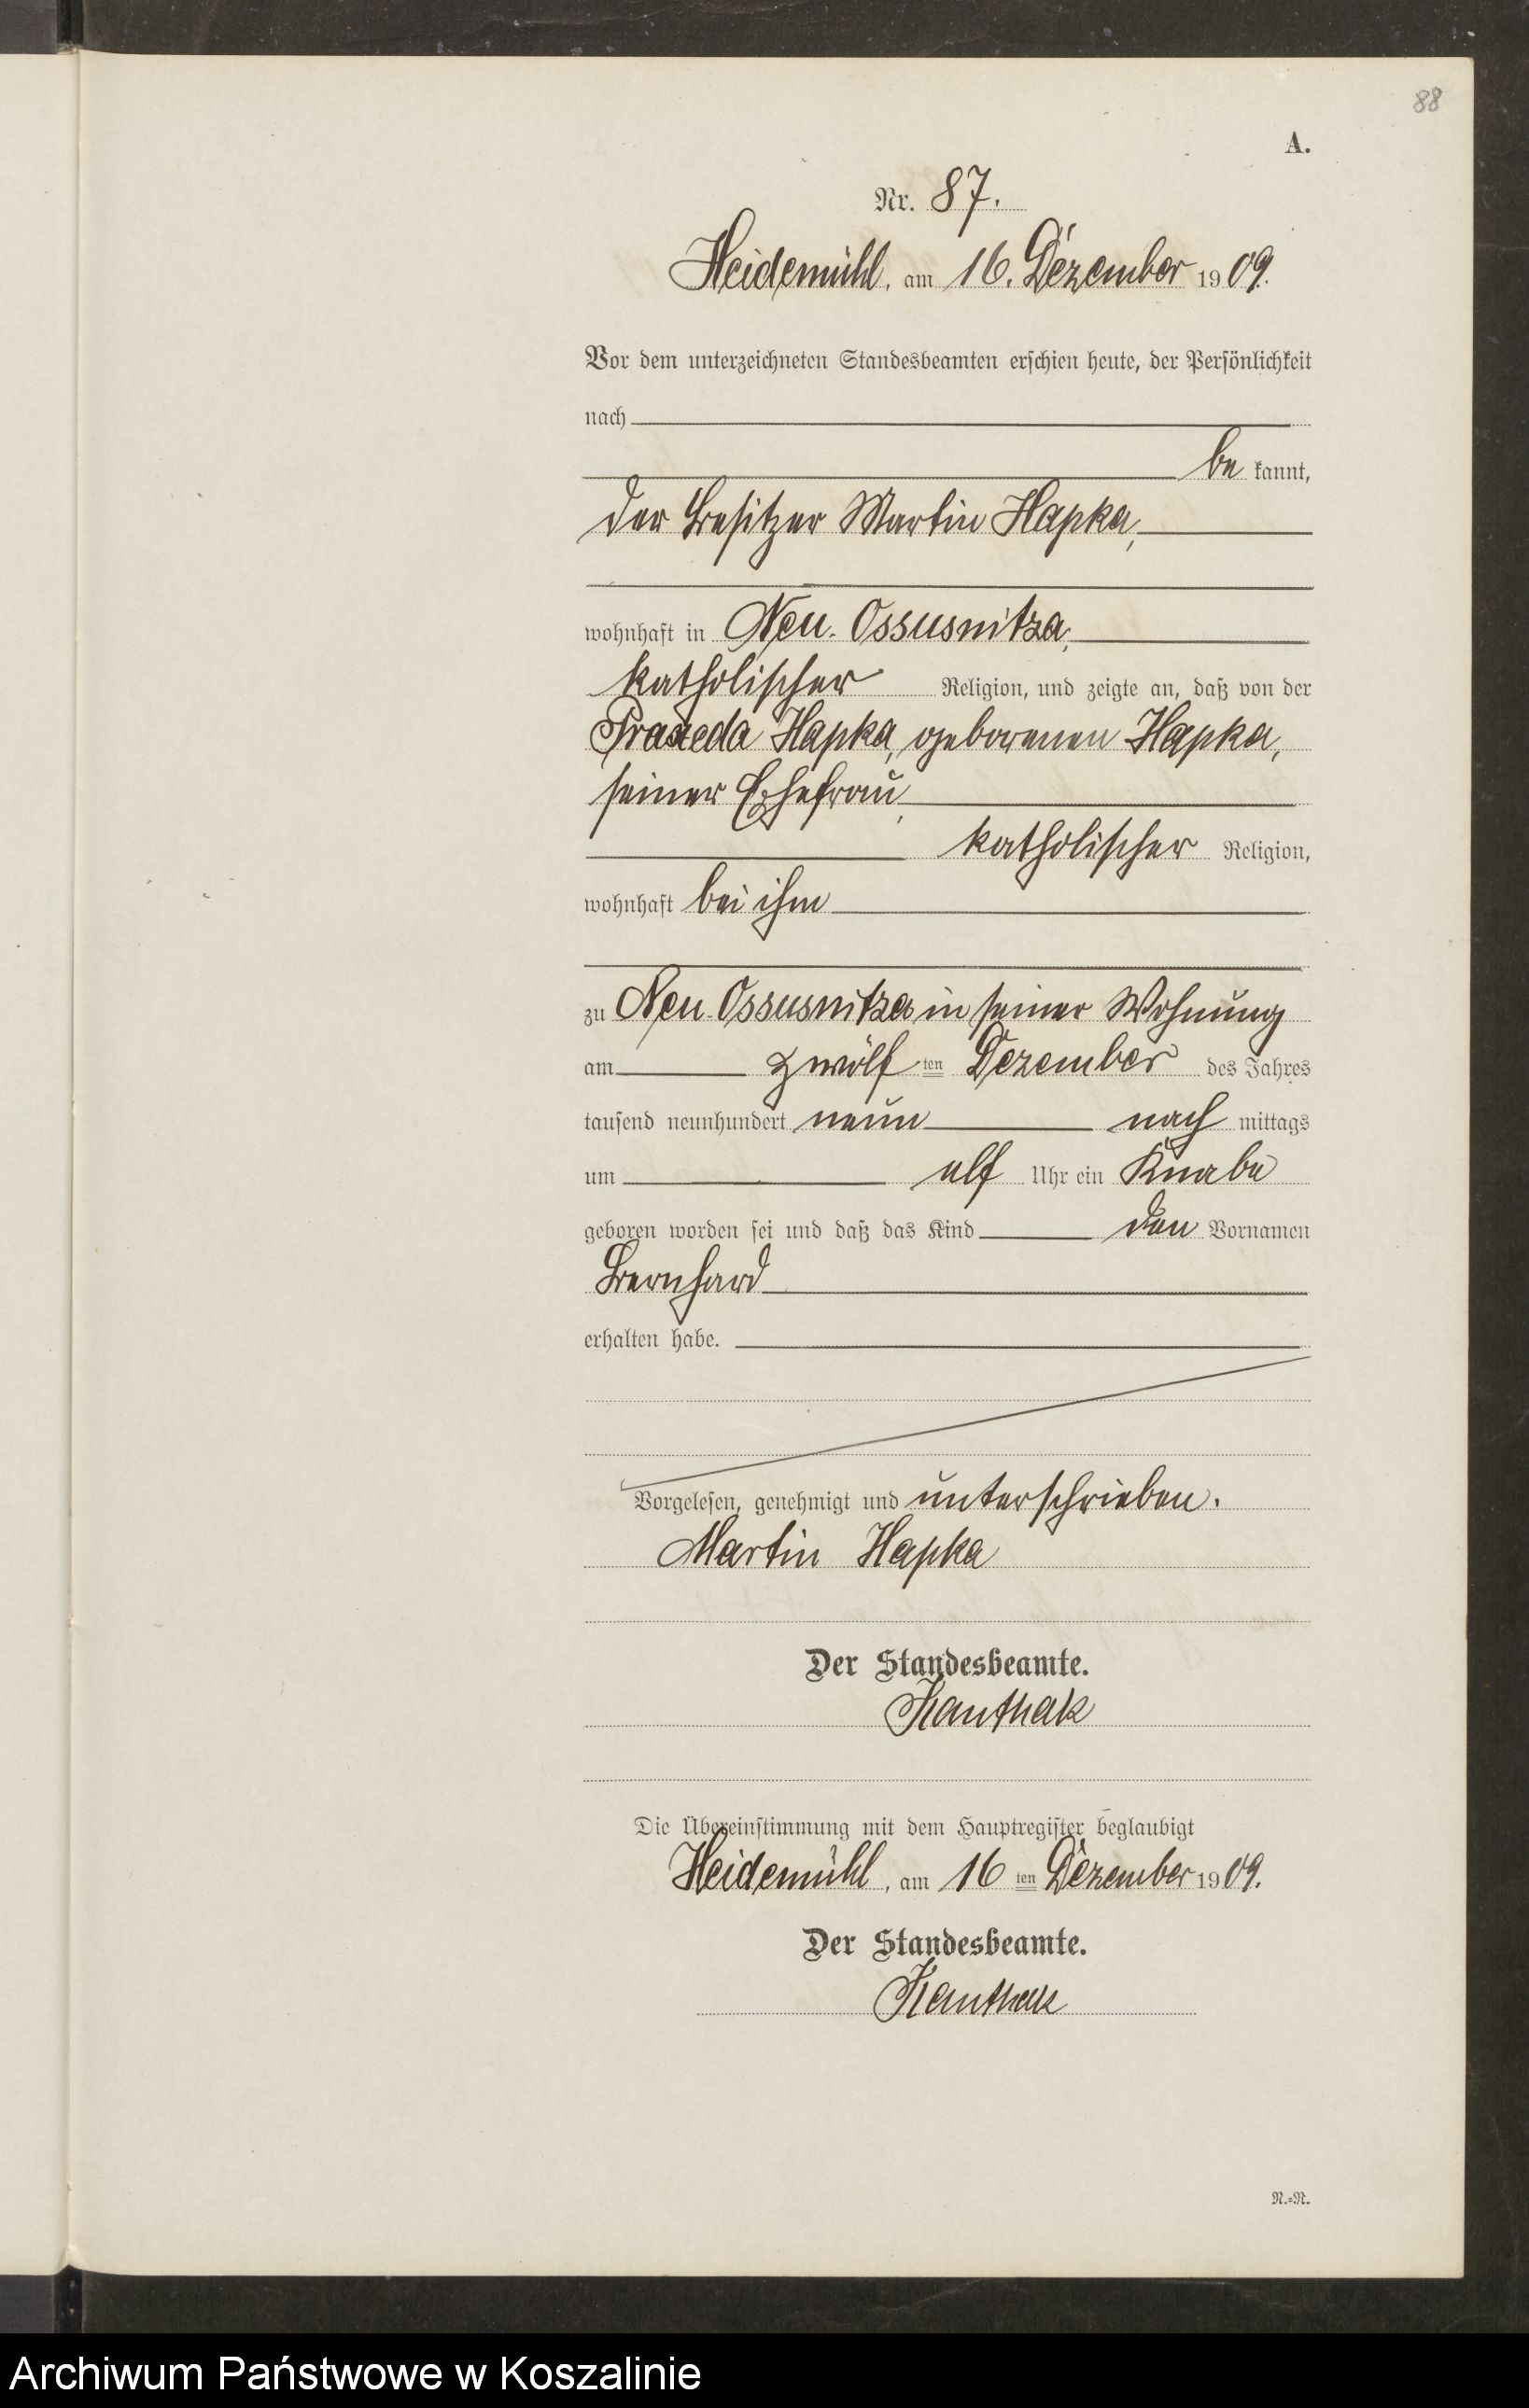 88
A.
Nr. 87.
Heidemühl, am 16. Dezember 1909.
Vor dem unterzeichneten Standesbeamten erschien heute, der Persönlichkeit
nach
be kannt,
der Besitzer Martin Hapka,
wohnhaft in Neu. Ossusnitza,
katholischer Religion, und zeigte an, daß von der
Praxeda Hapka, geborenen Hapka,
seiner Ehefrau,
katholischer Religion,
wohnhaft bei ihm
zu Neu Ossusnitza in seiner Wohnung
am zwölf ten Dezember des Jahres
tausend neunhundert neun nach mittags
um elf Uhr ein Knabe
geboren worden sei und daß das Kind den Vornamen
Bernhard
erhalten habe.
Vorgelesen, genehmigt und unterschrieben.
Martin Hapka
Der Standesbeamte.
Kauthak
Die Übereinstimmung mit dem Hauptregister beglaubigt
Heidemühl, am 16 ten Dezember 1909.
Der Standesbeamte.
Kauthak
N.=N.
Archiwum Państwowe w Koszalinie